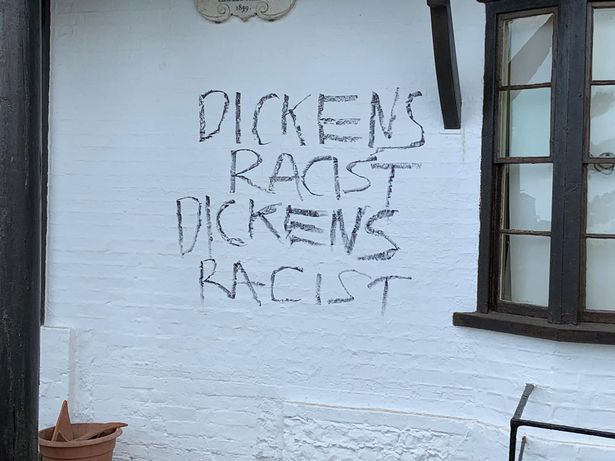 1859.
DICKENS
RACIST
DICKENS
RACIST